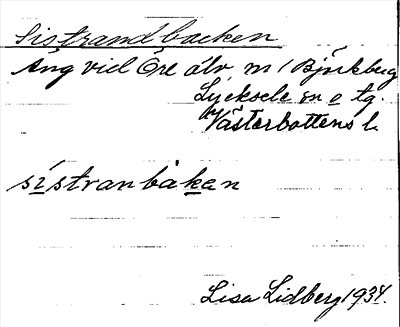 Sistrandbacken
Äng vid Öre älv m/Björkberg
Lycksele sn o tg.
Västerbottens l.
sistranbaken
Lisa Lidberg 1934.